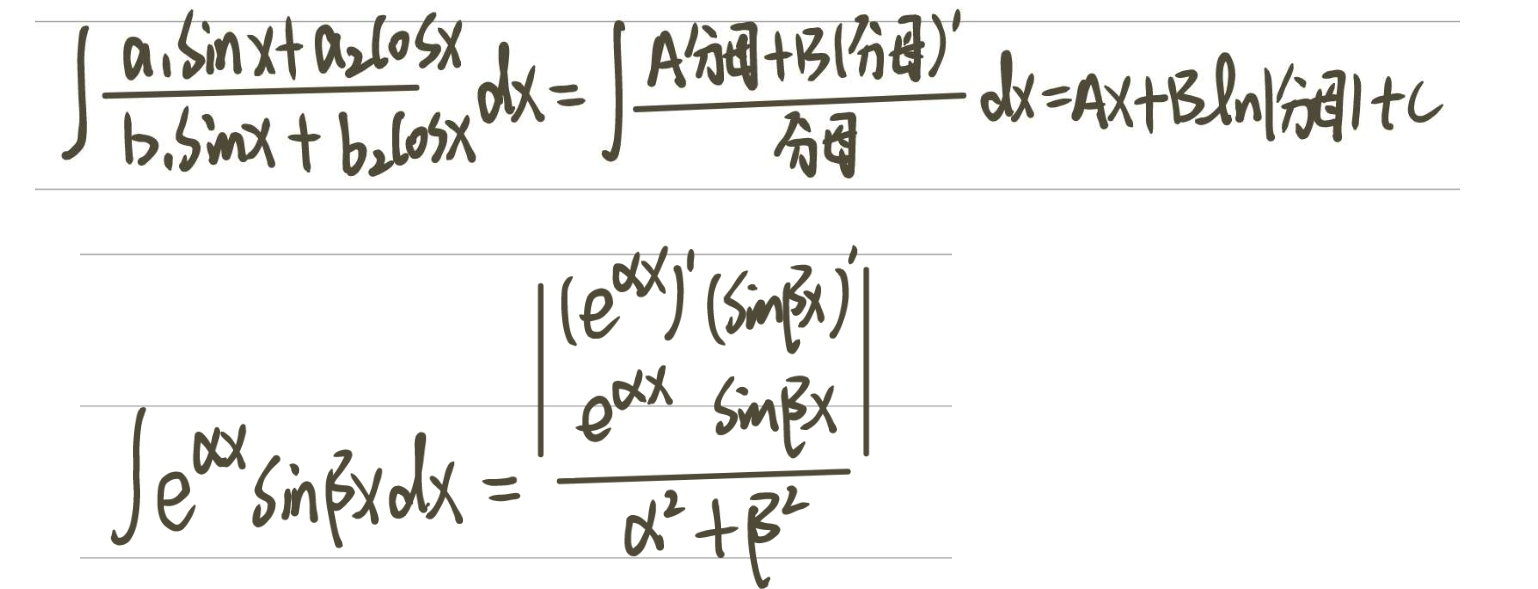 ∫ (a₁sinx + a₂cosx)/(b₁sinx + b₂cosx) dx = ∫ (A分母 + B(分母)′)/分母 dx = Ax + B ln|分母| + C
∫ e^{αx} sinβx dx = |(e^{αx})′ (sinβx)′; e^{αx} sinβx| / (α² + β²)